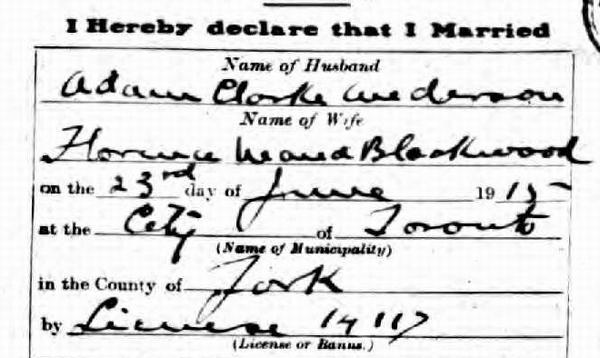 I Hereby declare that I Married
Name of Husband
Adam Clarke Anderson
Name of Wife
Florence Maud Blackwood
on the 23rd day of June 1915
at the City of Toronto
(Name of Municipality)
in the County of York
by License 14117
(License or Banns.)